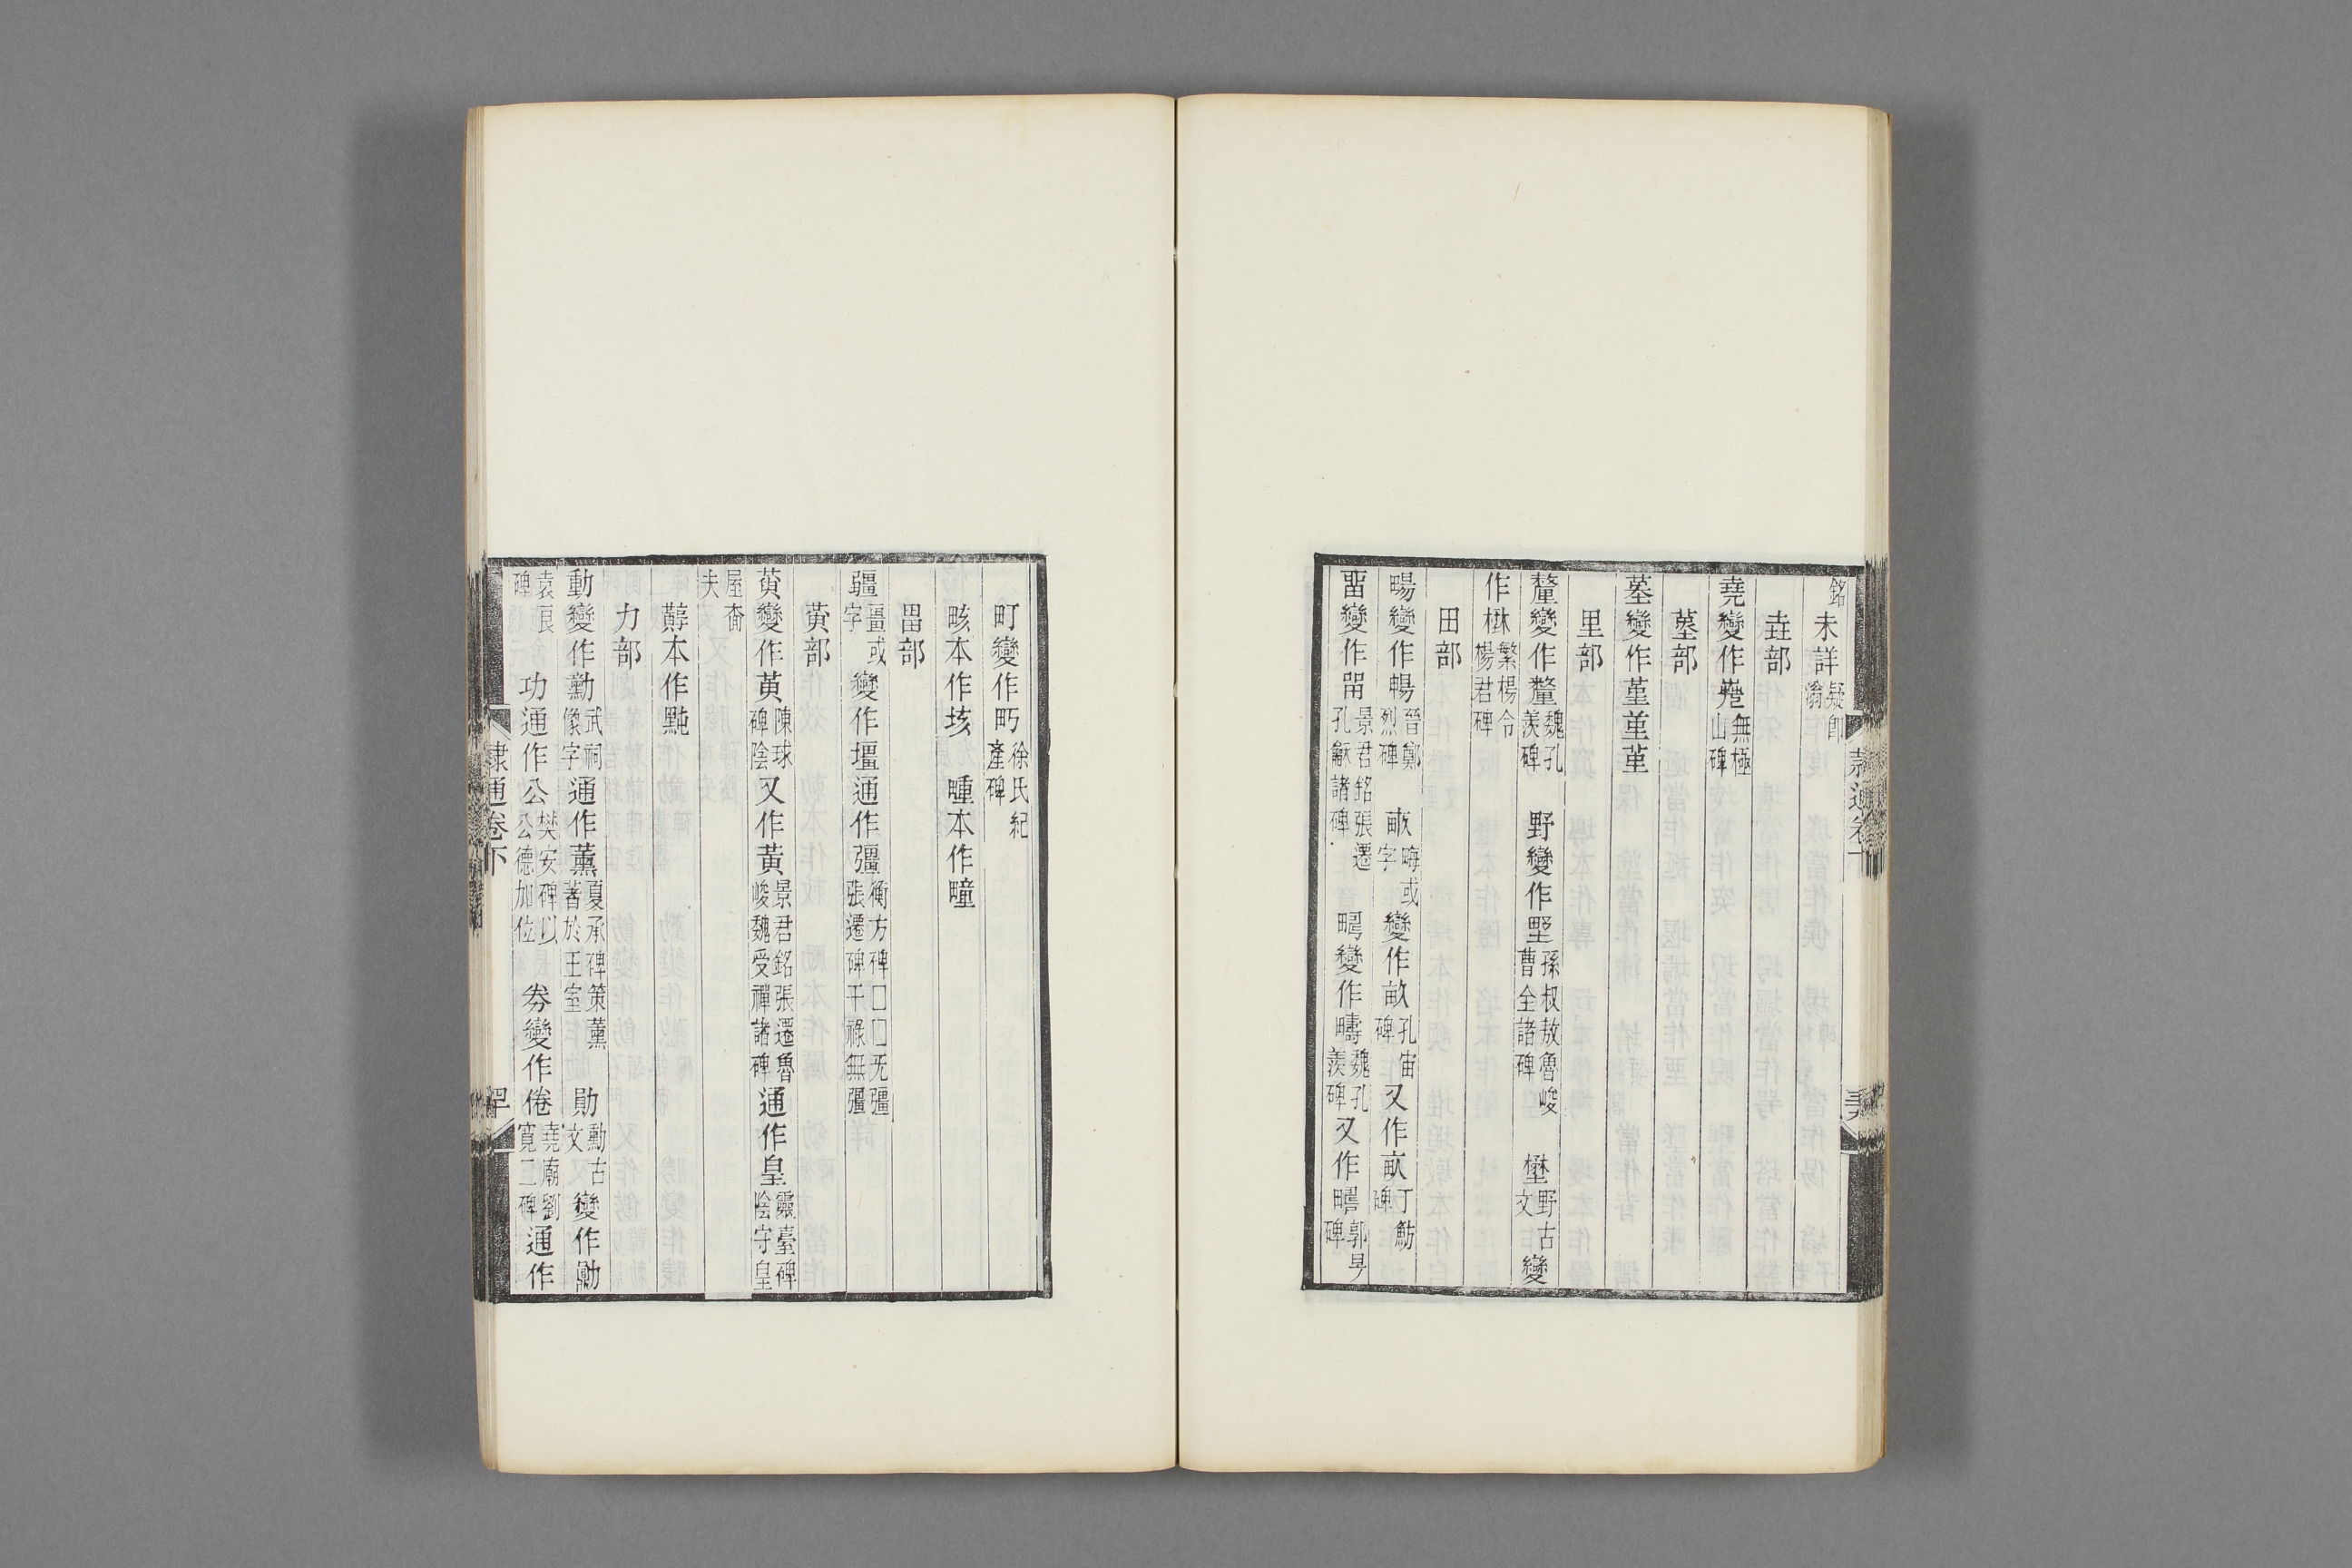 銘未詳疑卽瀚
垚部
堯變作𡋰無極山碑
墓部
墓變作堇堇堇
里部
釐變作釐魏孔羨碑　野變作墅孫叔敖魯峻曹全諸碑　壄野古文變
作楙繁楊令楊君碑
田部
暘變作暢晉鄭烈碑　畞畮或字變作畝孔宙碑又作畝丁魴碑
畱變作畱景君銘張遷孔龢諸碑　疇變作疇魏孔羨碑又作疇郭旻碑
隸通卷下
町變作町徐氏紀產碑
畡本作垓　畽本作疃
畕部
疆畺或字變作壃通作彊衡方碑□□无彊張遷碑干祿無彊
黃部
黃變作黃陳球碑陰又作黃景君銘張遷魯峻魏受禪諸碑通作皇靈臺碑陰字皇
屋嗇夫
黗本作黗
力部
動變作勳武祠像字通作薰夏承碑策薰著於王室　勛勳古文變作勛
袁良碑　功通作公樊安碑以公德加位　劵變作倦堯廟劉寬二碑通作
隸通卷下